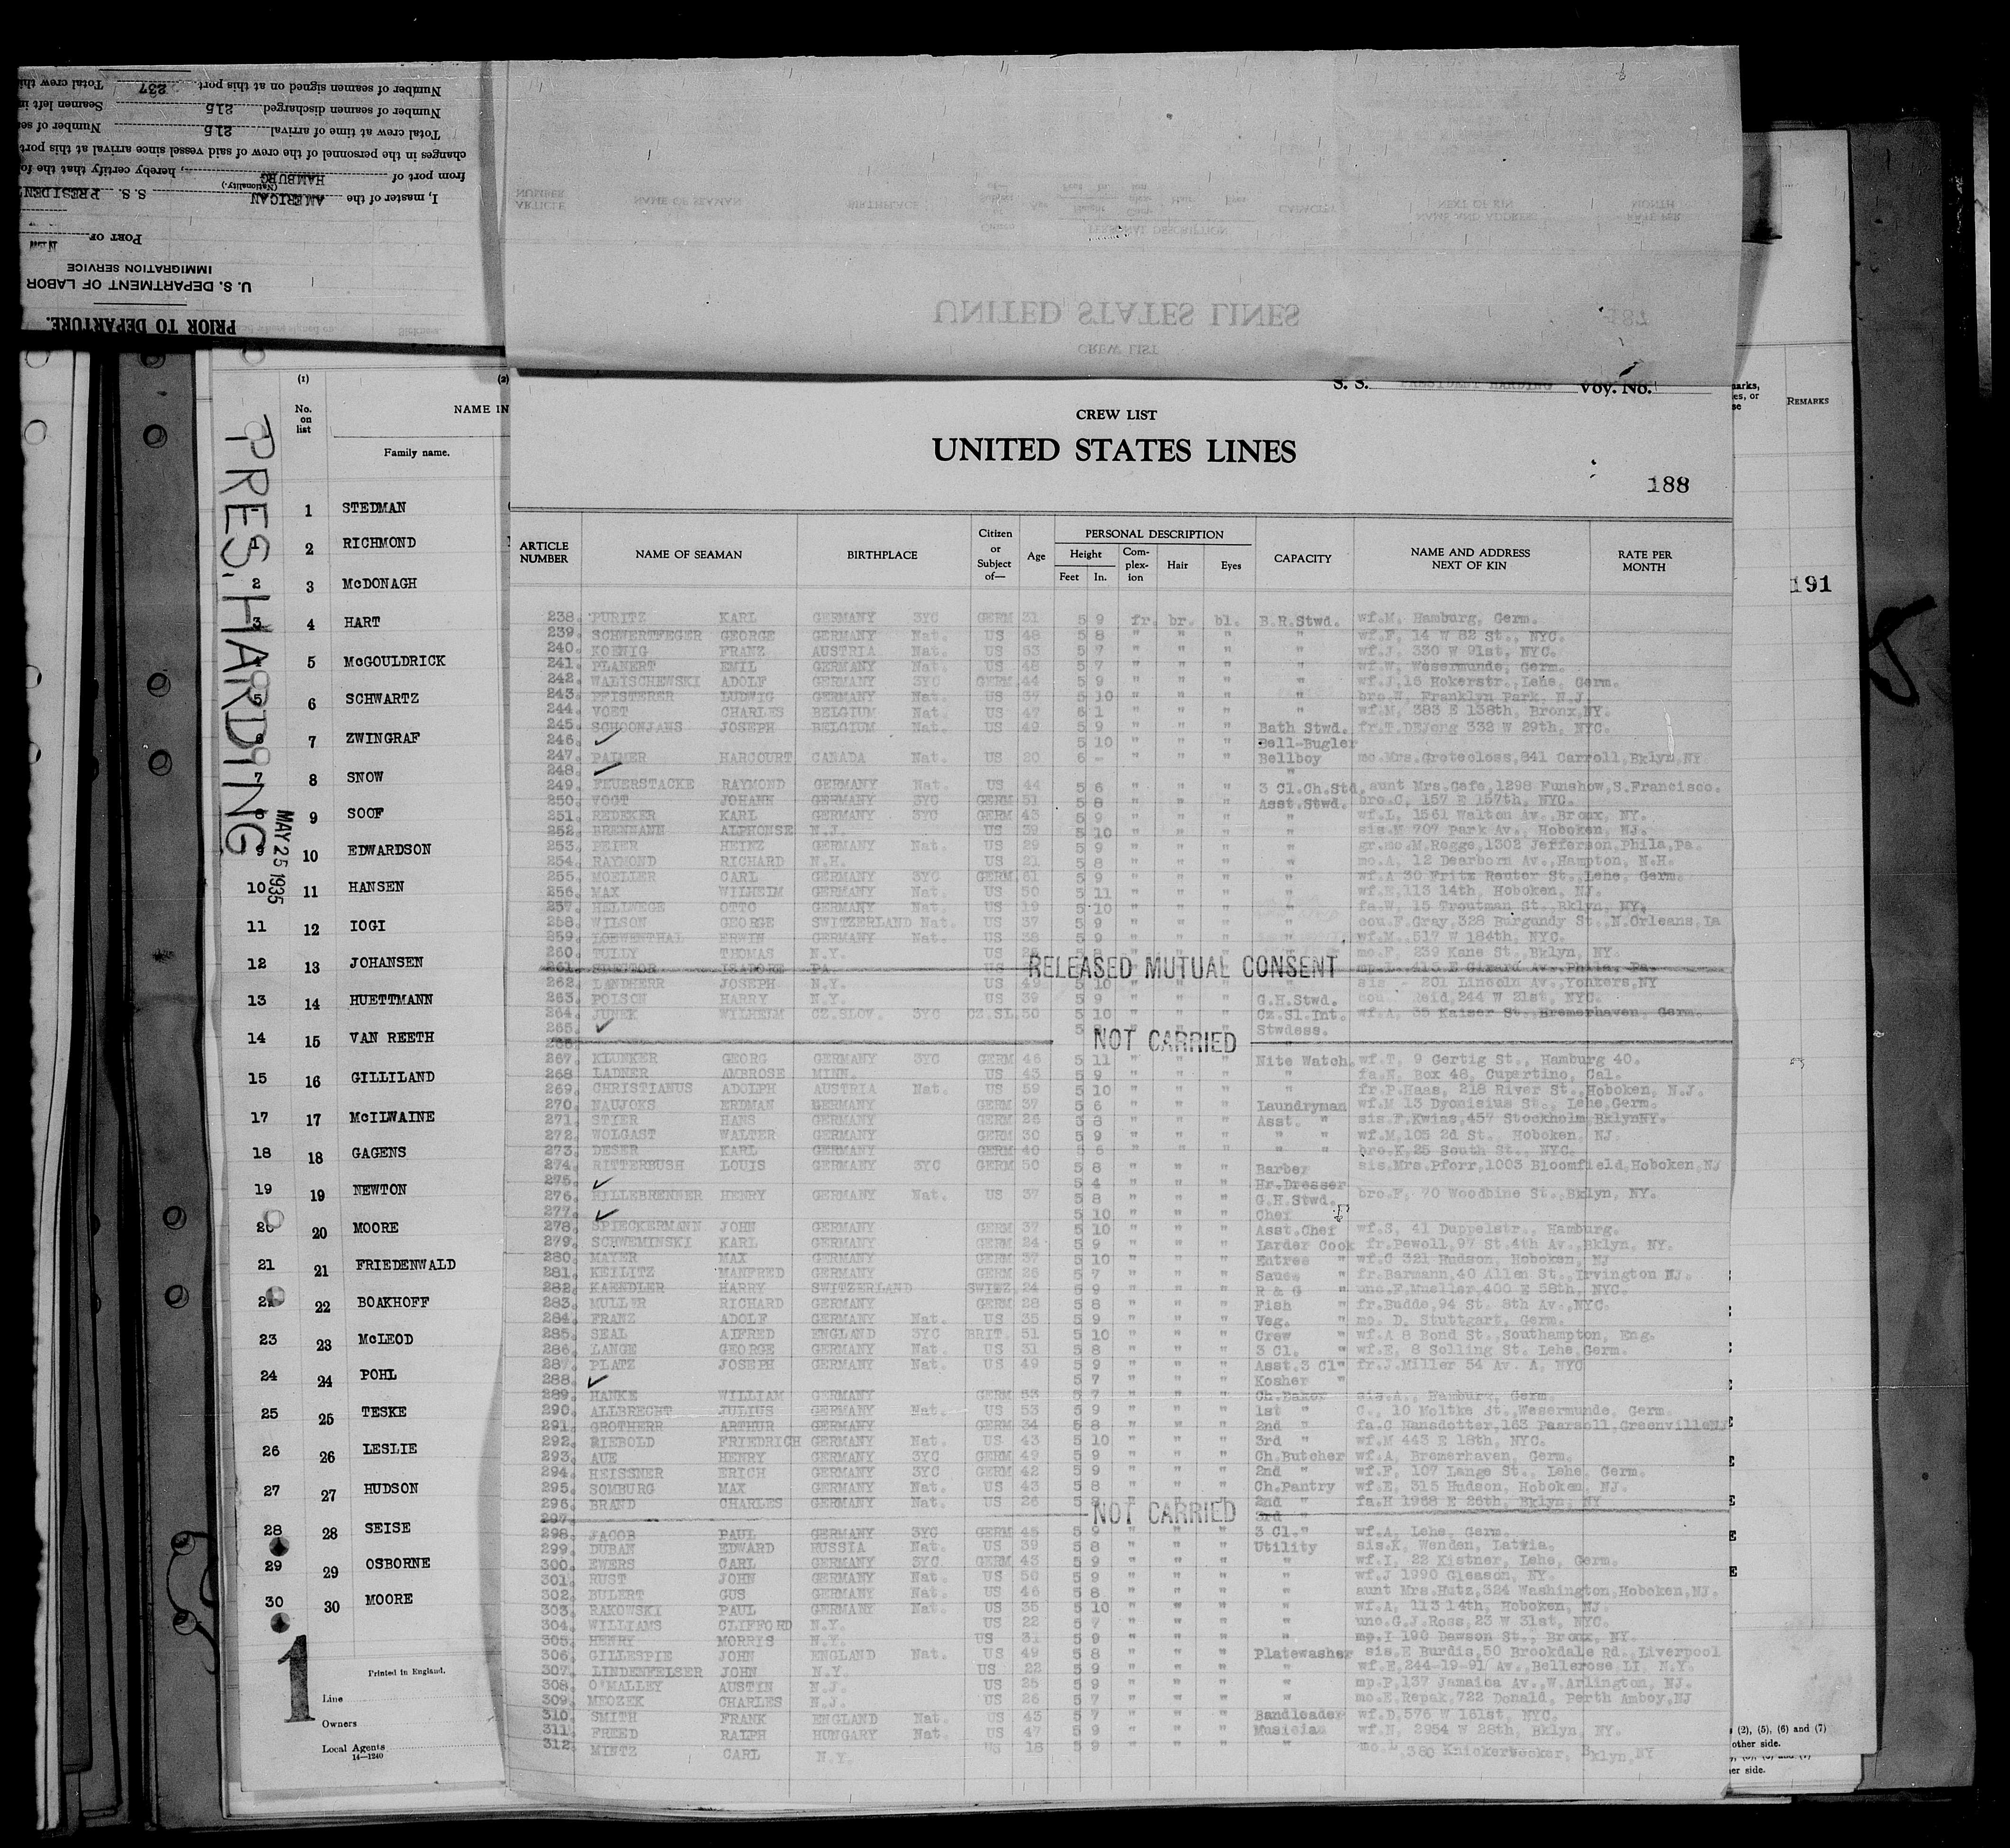 PRIOR TO DEPARTURE.
U. S. DEPARTMENT OF LABOR
IMMIGRATION SERVICE
PORT OF
I, master of the AMERICAN S. S. PRESIDENT
(Nationality.)
from port of HAMBURG, hereby certify that the fo
changes in the personnel of the crew of said vessel since arrival at this port
Total crew at time of arrival 215 Number of se
Number of seamen discharged 215 Seamen left in
Number of seamen signed on at this port 237 Total crew thi
PRES. HARDING
MAY 25 1935
(1) (2)
No. on list NAME IN
Family name.
1 STEDMAN
1 2 RICHMOND
2 3 McDONAGH
3 4 HART
4 5 McGOULDRICK
5 6 SCHWARTZ
6 7 ZWINGRAF
7 8 SNOW
8 9 SOOF
9 10 EDWARDSON
10 11 HANSEN
11 12 IOGI
12 13 JOHANSEN
13 14 HUETTMANN
14 15 VAN REETH
15 16 GILLILAND
17 17 McILWAINE
18 18 GAGENS
19 19 NEWTON
20 20 MOORE
21 21 FRIEDENWALD
22 22 BOAKHOFF
23 23 McLEOD
24 24 POHL
25 25 TESKE
26 26 LESLIE
27 27 HUDSON
28 28 SEISE
29 29 OSBORNE
30 30 MOORE
1
Printed in England.
Line
Owners
Local Agents
14—1240
S. S. PRESIDENT HARDING Voy. No.
CREW LIST
UNITED STATES LINES
188
ARTICLE NUMBER NAME OF SEAMAN BIRTHPLACE Citizen or Subject of— Age PERSONAL DESCRIPTION Height Feet In. Complexion Hair Eyes CAPACITY NAME AND ADDRESS NEXT OF KIN RATE PER MONTH
238. PURITZ KARL GERMANY 3YC GERM 31 5 9 fr. br. bl. B.R.Stwd. wf.M. Hamburg, Germ.
239. SCHWERTFEGER GEORGE GERMANY Nat. US 48 5 8 " " " " wf.F, 14 W 82 St., NYC.
240. KOENIG FRANZ AUSTRIA Nat. US 53 5 7 " " " " wf.J, 330 W 91st, NYC.
241. PLANERT EMIL GERMANY Nat. US 48 5 7 " " " " wf.W, Wesermunde, Germ.
242. WALISCHEWSKI ADOLF GERMANY 3YC GERM 44 5 9 " " " " wf.J,16 Hokerstr.,Lehe, Germ.
243. PFISTERER LUDWIG GERMANY Nat. US 37 5 10 " " " " bro.W, Franklyn Park, N.J.
244. VOET CHARLES BELGIUM Nat. US 47 6 1 " " " " wf.M, 383 E 138th, Bronx,NY.
245. SCHOONJANS JOSEPH BELGIUM Nat. US 49 5 9 " " " Bath Stwd. fr.T.DEJong 332 W 29th, NYC.
246. 5 10 " " " Bell-Bugler
247. PALMER HARCOURT CANADA Nat. US 20 6 - " " " Bellboy mo.Mrs.Grotecloss,841 Carroll,Bklyn,NY
248. "
249. FEUERSTACKE RAYMOND GERMANY Nat. US 44 5 6 " " " 3 Cl.Ch.Std. aunt Mrs.Gafe,1298 Funshow,S.Francisco.
250. VOGT JOHANN GERMANY 3YC GERM 51 5 8 " " " Asst.Stwd. bro.C, 157 E 157th, NYC.
251. REDEKER KARL GERMANY 3YC GERM 43 5 9 " " " " wf.L, 1561 Walton Av., Bronx, NY.
252. BRENNANN ALPHONSE N.J. US 39 5 10 " " " " sis.M 707 Park Av., Hoboken, NJ.
253. PEIER HEINZ GERMANY Nat. US 29 5 9 " " " " gr.mo.M.Rogge,1302 Jefferson,Phila,Pa.
254. RAYMOND RICHARD N.H. US 21 5 8 " " " " mo.A, 12 Dearborn Av.,Hampton, N.H.
255. MOELLER CARL GERMANY 3YC GERM 61 5 9 " " " " wf.A 30 Fritz Reuter St.,Lehe, Germ.
256. MAX WILHELM GERMANY Nat. US 50 5 11 " " " " wf.E,113 14th, Hoboken, NJ.
257. HELLWEGE OTTO GERMANY Nat. US 19 5 10 " " " " fa.W, 15 Troutman St., Bklyn, NY.
258. WILSON GEORGE SWITZERLAND Nat. US 37 5 9 " " " " cou.F.Gray,328 Burgundy St.,N.Orleans,La
259. LOEWENTHAL ERWIN GERMANY Nat. US 38 5 9 " " " " wf.M, 517 W 184th, NYC.
260. TULLY THOMAS N.Y. US mo.F, 239 Kane St., Bklyn, NY.
261. PA. US RELEASED MUTUAL CONSENT Girard Av. Phila, Pa.
262. LANDHERR JOSEPH N.Y. US 49 5 10 sis - 201 Lincoln Av.,Yonkers,NY
263. POISON HARRY N.Y. US 39 5 9 " " " G.H.Stwd. cou. Reid,244 W 21st, NYC.
264. JUNEK WILHELM CZ.SLOV. 3YC CZ.SL. 50 5 10 " " " Cz.Sl.Int. wf.A, 35 Kaiser St.,Bremerhaven, Germ.
265. " " " Stwdess.
266. NOT CARRIED "
267. KLUNKER GEORG GERMANY 3YC GERM 46 5 11 " " " Nite Watch. wf.T, 9 Gertig St., Hamburg 40.
268 LADNER AMBROSE MINN. US 43 5 9 " " " " fa.N, Box 48, Cupertino, Cal.
269. CHRISTIANUS ADOLPH AUSTRIA Nat. US 59 5 10 " " " " fr.P.Haas, 218 River St.,Hoboken, N.J.
270. NAUJOKS ERDMAN GERMANY GERM 37 5 6 " " " Laundryman wf.M 13 Dyonisius St., Lehe,Germ.
271. STIER HANS GERMANY GERM 26 5 8 " " " Asst. " sis.F.Kwias,457 Stockholm,BklynNY.
272. WOLGAST WALTER GERMANY GERM 30 5 9 " " " " " wf.M,105 2d St., Hoboken, NJ.
273. DESER KARL GERMANY GERM 40 5 6 " " " " " bro.K,25 South St., NYC.
274. RITTERBUSH LOUIS GERMANY 3YC GERM 50 5 8 " " " Barber sis.Mrs.Pforr,1003 Bloomfield,Hoboken,NJ
275. 5 4 " " " Hr.Dresser
276. HILLEBRENNER HENRY GERMANY Nat. US 37 5 8 " " " G.H.Stwd. bro.F, 70 Woodbine St.,Bklyn, NY.
277. 5 10 " " " Chef
278. SPIECKERMANN JOHN GERMANY GERM 37 5 10 " " " Asst.Chef wf.S, 41 Duppelstr., Hamburg.
279. SCHWEMINSKI KARL GERMANY GERM 24 5 9 " " " Larder Cook fr.Pewoll,97 St.4th Av.,Bklyn, NY.
280. MAYER MAX GERMANY GERM 37 5 10 " " " Entree " wf.C 321 Hudson, Hoboken, NJ
281. KEILITZ MANFRED GERMANY GERM 26 5 7 " " " Sauce " fr.Barmann,40 Allen St.,Irvington NJ.
282. KAENDLER HARRY SWITZERLAND SWITZ. 24 5 9 " " " R & G " unc.F.Mueller,400 E 58th, NYC.
283. MULLER RICHARD GERMANY GERM 28 5 8 " " " Fish " fr.Budde,94 St. 8th Av.,NYC.
284. FRANZ ADOLF GERMANY Nat. US 35 5 9 " " " Veg. " mo. D. Stuttgart, Germ.
285. SEAL ALFRED ENGLAND 3YC BRIT. 51 5 10 " " " Crew " wf.A 8 Bond St.,Southampton, Eng.
286. LANGE GEORGE GERMANY Nat. US 31 5 8 " " " 3 Cl. " wf.E, 8 Solling St. Lehe,Germ.
287. PLATZ JOSEPH GERMANY Nat. US 49 5 9 " " " Asst.3 Cl" fr.J.Miller 54 Av. A, NYC
288. 5 7 " " " Kosher "
289. HANKE WILLIAM GERMANY GERM 53 5 7 " " " Ch.Baker sis.A., Hamburg, Germ.
290. ALLBRECHT JULIUS GERMANY Nat. US 53 5 9 " " " 1st " C., 10 Moltke St.,Wesermunde, Germ.
291. GROTHERR ARTHUR GERMANY GERM 34 5 8 " " " 2nd " fa.C Hansdotter,163 Paarsoll,GreenvilleNJ
292. RIEBOLD FRIEDRICH GERMANY Nat. US 43 5 10 " " " 3rd " wf.M 443 E 18th, NYC.
293. AUE HENRY GERMANY 3YC GERM 49 5 9 " " " Ch.Butcher wf.A, Bremerhaven, Germ.
294. HEISSNER ERICH GERMANY 3YC GERM 42 5 9 " " " 2nd " wf.F, 107 Lange St., Lehe, Germ.
295. SOMBURG MAX GERMANY Nat. US 43 5 8 " " " Ch.Pantry wf.E, 315 Hudson, Hoboken, NJ.
296. BRAND CHARLES GERMANY Nat. US 26 5 2nd " fa.H 1968 E 26th, Bklyn, NY
297. NOT CARRIED 3rd "
298. JACOB PAUL GERMANY 3YC GERM 45 5 9 " " " 3 Cl." wf.A, Lehe, Germ.
299. DUBAN EDWARD RUSSIA Nat. US 39 5 8 " " " Utility sis.K, Wenden, Latvia.
300. EWERS CARL GERMANY 3YC. GERM 43 5 9 " " " " wf.I, 22 Kistner, Lehe, Germ.
301. RUST JOHN GERMANY Nat. US 56 5 9 " " " " wf.J 1990 Gleason, NY.
302. BULERT GUS GERMANY Nat. US 46 5 8 " " " " aunt Mrs.Hutz,324 Washington,Hoboken,NJ.
303. RAKOWSKI PAUL GERMANY Nat. US 35 5 10 " " " " wf.A, 113 14th, Hoboken, NJ.
304. WILLIAMS CLIFFORD N.Y. US 22 5 7 " " " " unc.G.J.Ross,23 W 31st, NYC.
305. HENRY MORRIS N.Y. US 31 5 9 " " " " mp.I 190 Dawson St., Bronx, NY.
306. GILLESPIE JOHN ENGLAND Nat. US 49 5 8 " " " Platewasher sis.E Burdis,50 Brookdale Rd., Liverpool
307. LINDENFELSER JOHN N.Y. US 22 5 9 " " " " wf.E,244-19-91 Av.,Bellerose LI, N.Y.
308. O'MALLEY AUSTIN N.J. US 25 5 9 " " " " mp.P,137 Jamaica Av.,W.Arlington, NJ.
309. MEOZEK CHARLES N.J. US 26 5 7 " " " " mo.E.Repak,722 Donald, Perth Amboy,NJ
310. SMITH FRANK ENGLAND Nat. US 43 5 7 " " " Bandleader wf.D,576 W 161st, NYC.
311. FREED RALPH HUNGARY Nat. US 47 5 9 " " " Musician wf.N, 2954 W 28th, Bklyn, NY.
312. MINTZ CARL N.Y. US 18 5 9 " " " " mo.L ,380 Knickerbocker, Bklyn,NY
REMARKS
191
(2), (5), (6) and (7)
other side.
er side.